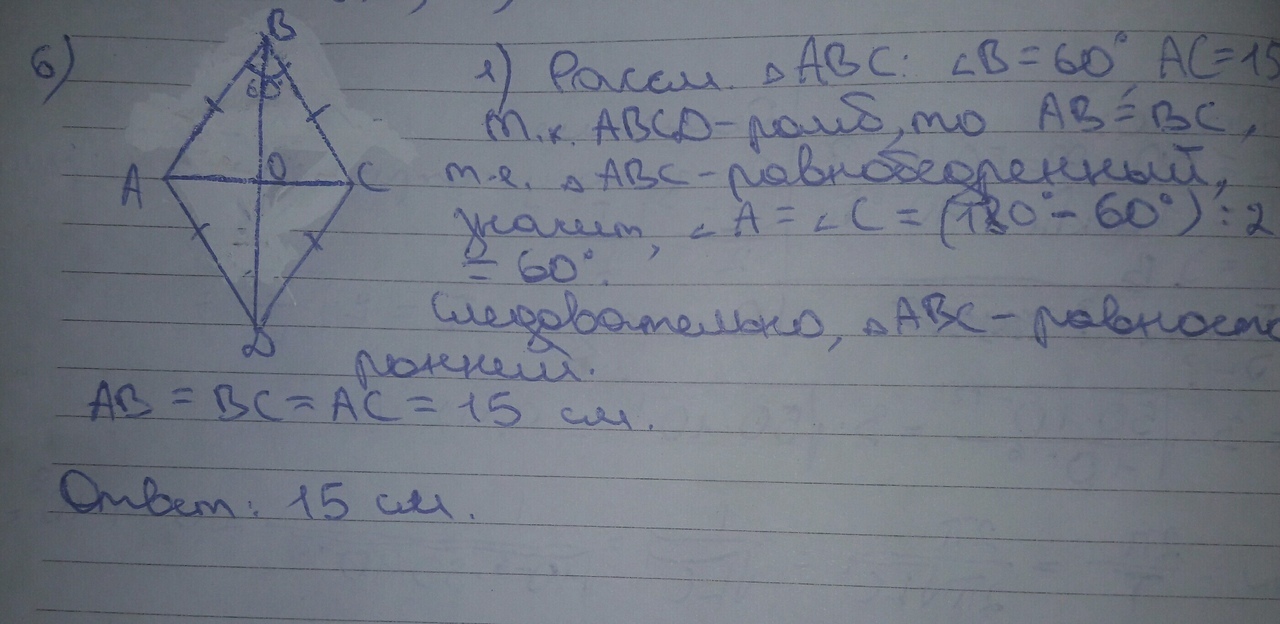 6)
B
60°
A
O
C
D
1) Рассм. △ABC: ∠B=60° AC=15
т.к. ABCD-ромб, то AB=BC,
т.е. △ABC-равнобедренный,
значит, ∠A=∠C=(180°-60°):2
=60°.
Следовательно, △ABC-равносто
ронний.
AB=BC=AC=15 см.
Ответ: 15 см.